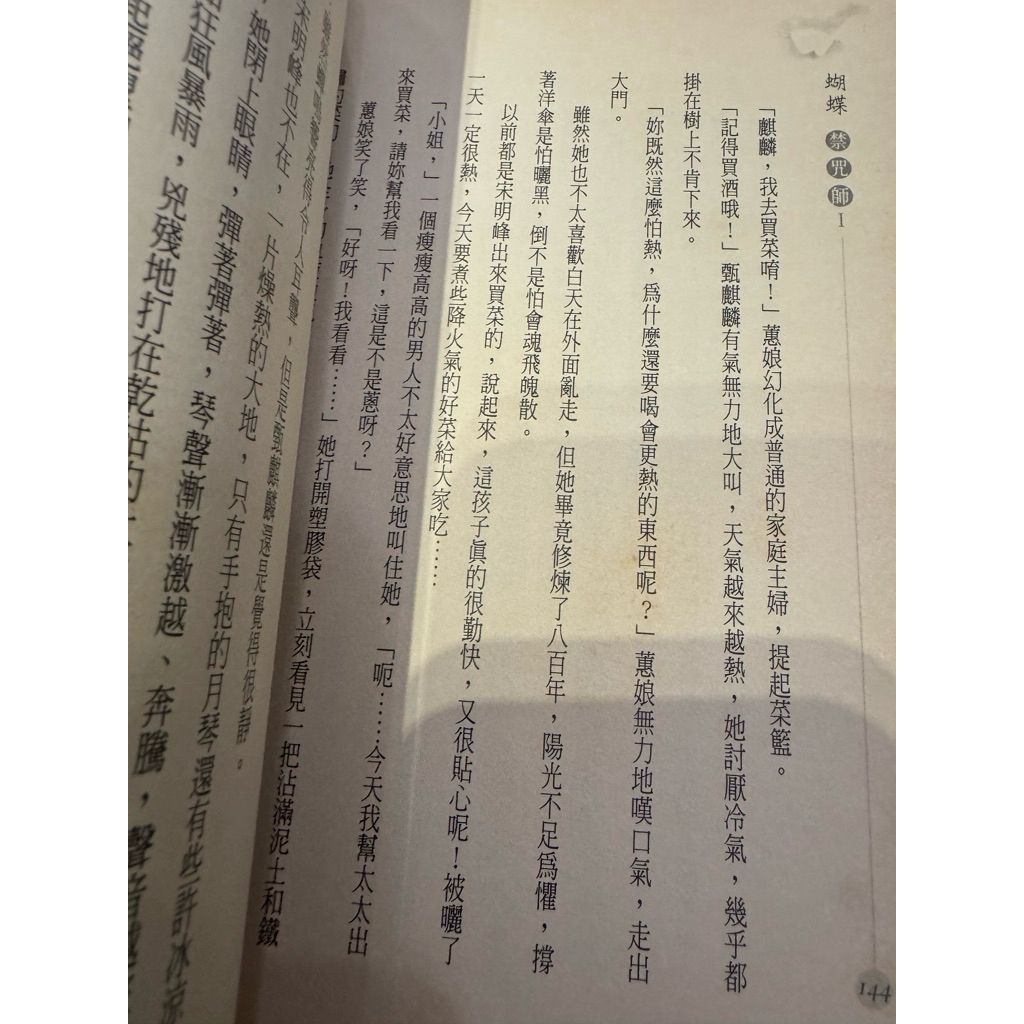 蝴蝶 禁咒師 I
「麒麟，我去買菜唷！」蕙娘幻化成普通的家庭主婦，提起菜籃。
「記得買酒哦！」甄麒麟有氣無力地大叫，天氣越來越熱，她討厭冷氣，幾乎都
掛在樹上不肯下來。
「妳既然這麼怕熱，爲什麼還要喝會更熱的東西呢？」蕙娘無力地嘆口氣，走出
大門。
雖然她也不太喜歡白天在外面亂走，但她畢竟修煉了八百年，陽光不足爲懼，撐
著洋傘是怕曬黑，倒不是怕會魂飛魄散。
以前都是宋明峰出來買菜的，說起來，這孩子眞的很勤快，又很貼心呢！被曬了
一天一定很熱，今天要煮些降火氣的好菜給大家吃……
「小姐，」一個瘦瘦高高的男人不太好意思地叫住她，「呃……今天我幫太太出
來買菜，請妳幫我看一下，這是不是蔥呀？」
蕙娘笑了笑，「好呀！我看看……」她打開塑膠袋，立刻看見一把沾滿泥土和鐵
144
令人耳聾，但是甄麒麟還是覺得很靜。
宋明峰也不在，一片燥熱的大地，只有手抱的月琴還有些許冰涼
她閉上眼睛，彈著彈著，琴聲漸漸激越、奔騰，聲音
狂風暴雨，兇殘地打在乾枯的